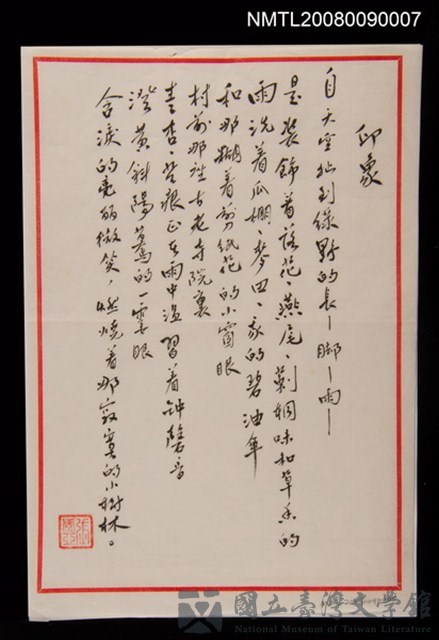 NMTL20080090007
印象
自天空扯到綠野的長—脚—雨—
是裝飾着落花、燕尾、薊稠味和草香的
雨洗着瓜棚、麥田、家的碧油傘
和那糊着剪紙花的小窗眼
村前那誰古老寺院裏
青杏、苔痕正在雨中温習着鐘磬音
澄黄斜陽驀的一霎眼
含淚的亮麗微笑，燃燒着那寂寞的小樹林。
國立臺灣文學館
National Museum of Taiwan Literature